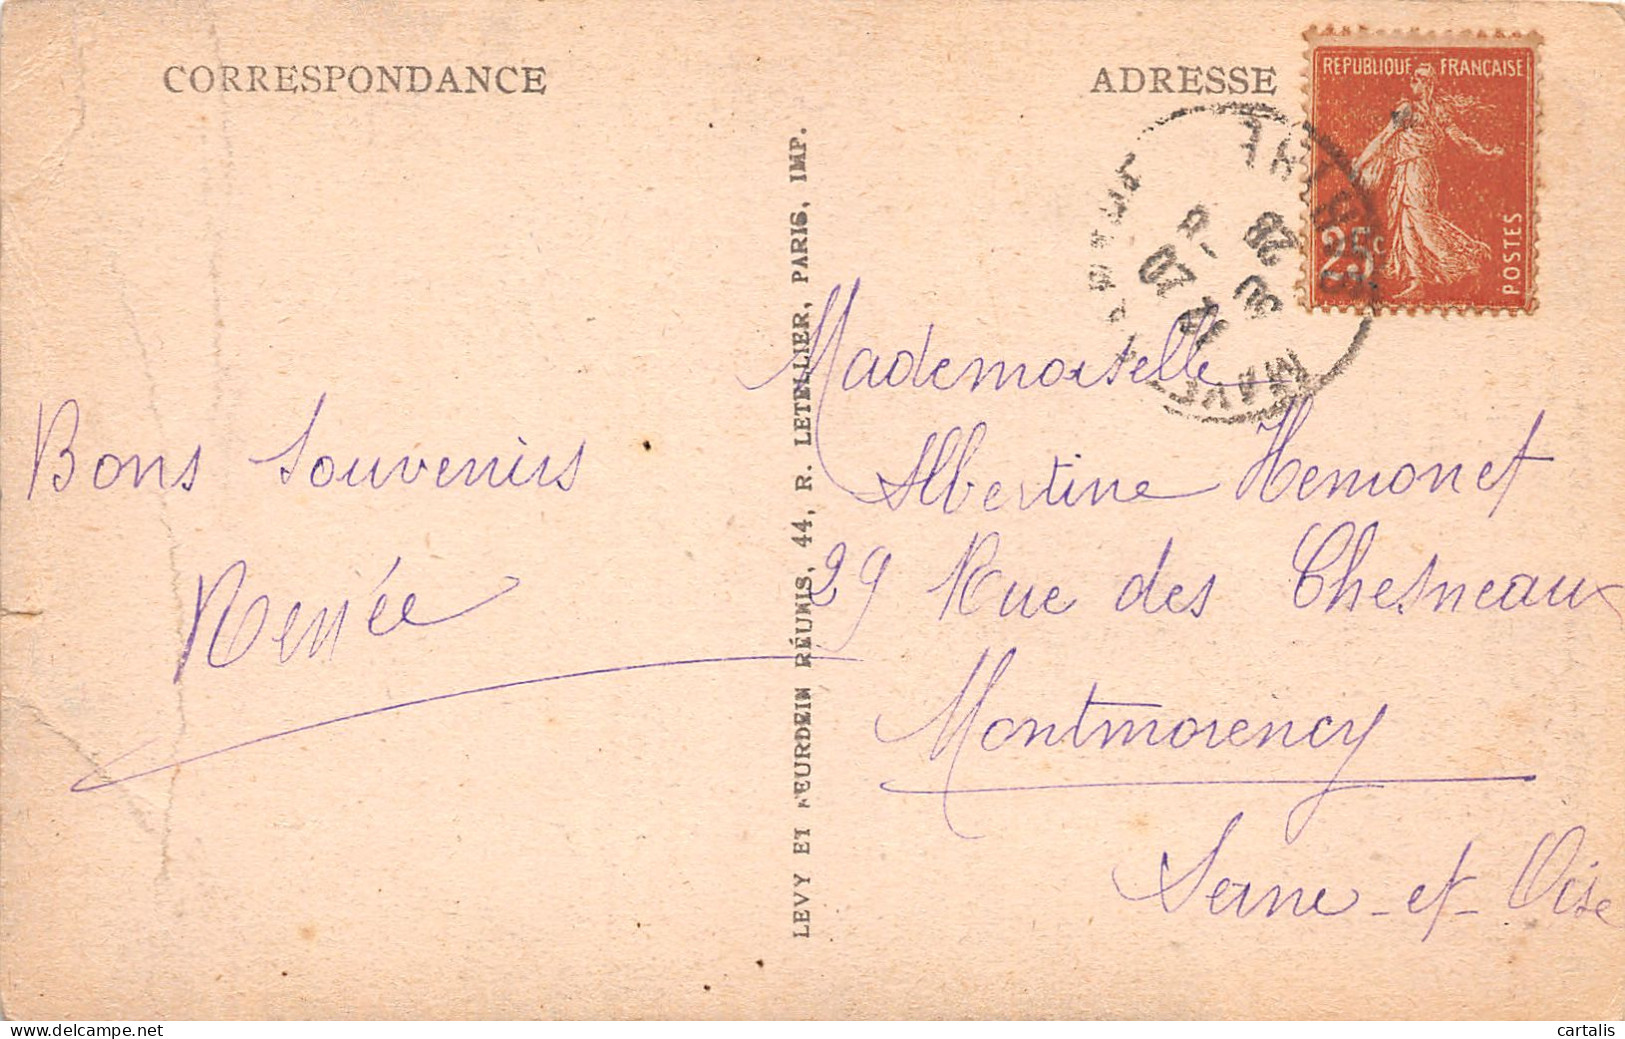 CORRESPONDANCE
ADRESSE
REPUBLIQUE FRANÇAISE
25c
POSTES
Bons Souvenirs
Renée
LEVY ET NEURDEIN RÉUNIS, 44, R. LETELLIER, PARIS, IMP.
Mademoiselle
Albertine Hemonet
29 Rue des Chesneaux
Montmorency
Seine-et-Oise
cartalis